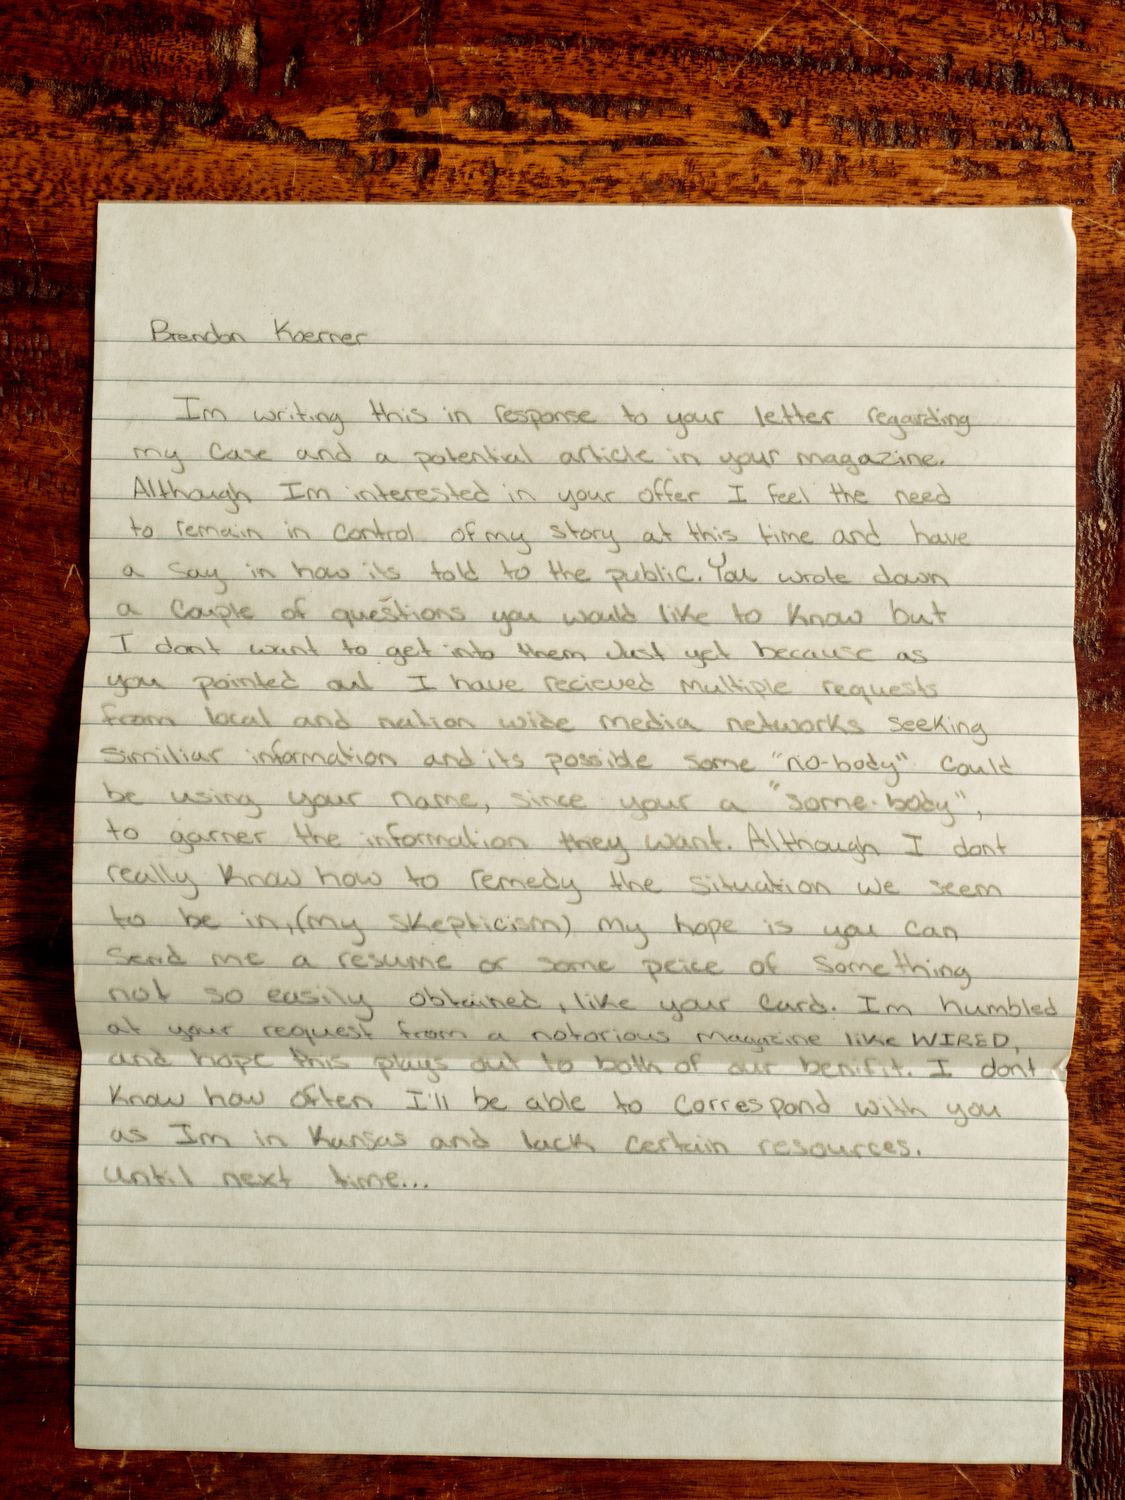 Brendon Koerner
Im writing this in response to your letter regarding
my case and a potential article in your magazine.
Although Im interested in your offer I feel the need
to remain in control of my story at this time and have
a say in how its told to the public. You wrote down
a couple of questions you would like to know but
I dont want to get into them Just yet because as
you pointed out I have recieved multiple requests
from local and nation wide media networks seeking
similiar information and its possible some "no-body" could
be using your name, since your a "some-body",
to garner the information they want. Although I dont
really know how to remedy the situation we seem
to be in, (my skepticism) my hope is you can
send me a resume or some peice of something
not so easily obtained, like your card. Im humbled
at your request from a notorious magazine like WIRED,
and hope this plays out to both of our benifit. I dont
know how often I'll be able to correspond with you
as Im in Kansas and lack certain resources.
until next time...